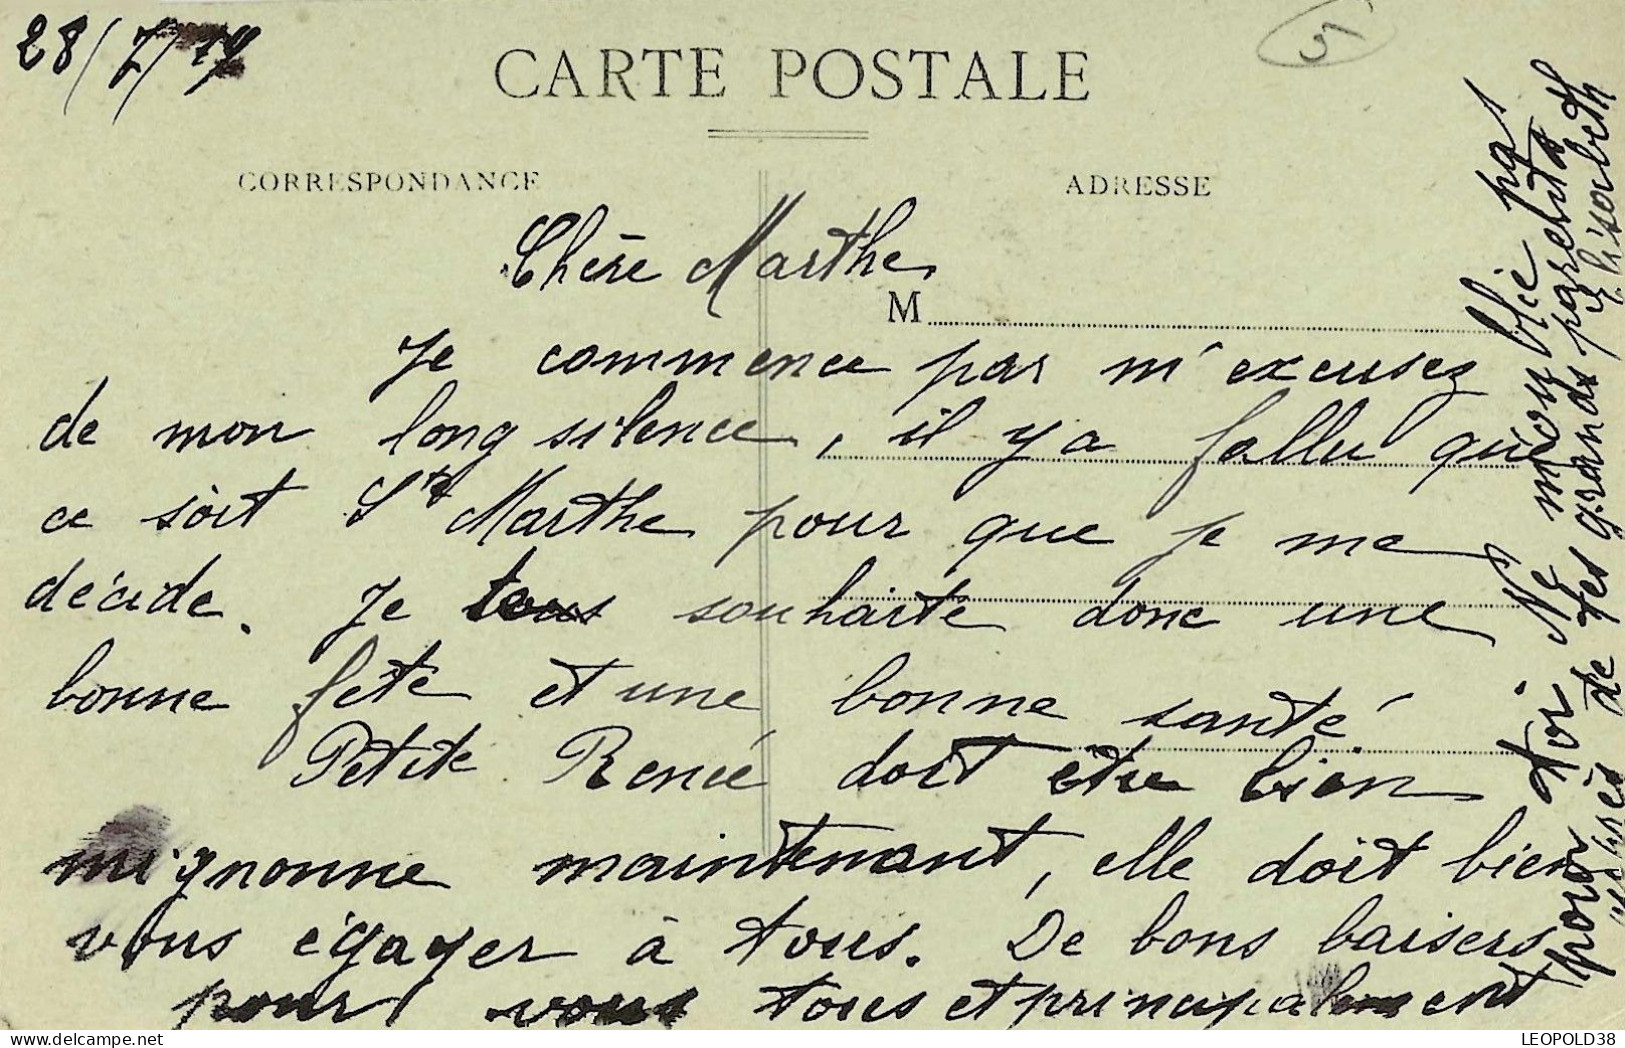 28/7/19
5
CARTE POSTALE
CORRESPONDANCE
ADRESSE
Chère Marthe
M
Je commence par m'excusez
de mon long silence, il y a fallu que
ce soit Ste Marthe pour que je me
décide. Je souhaite donc une
bonne fête et une bonne santé.
Petite Renée doit être bien
mignonne maintenant, elle doit bien
vous égayer à tous. De bons baisers
pour vous tous et principalement
pour toi. Ne m'oublie pas
auprès de tes grands parents
Elisabeth
LEOPOLD38